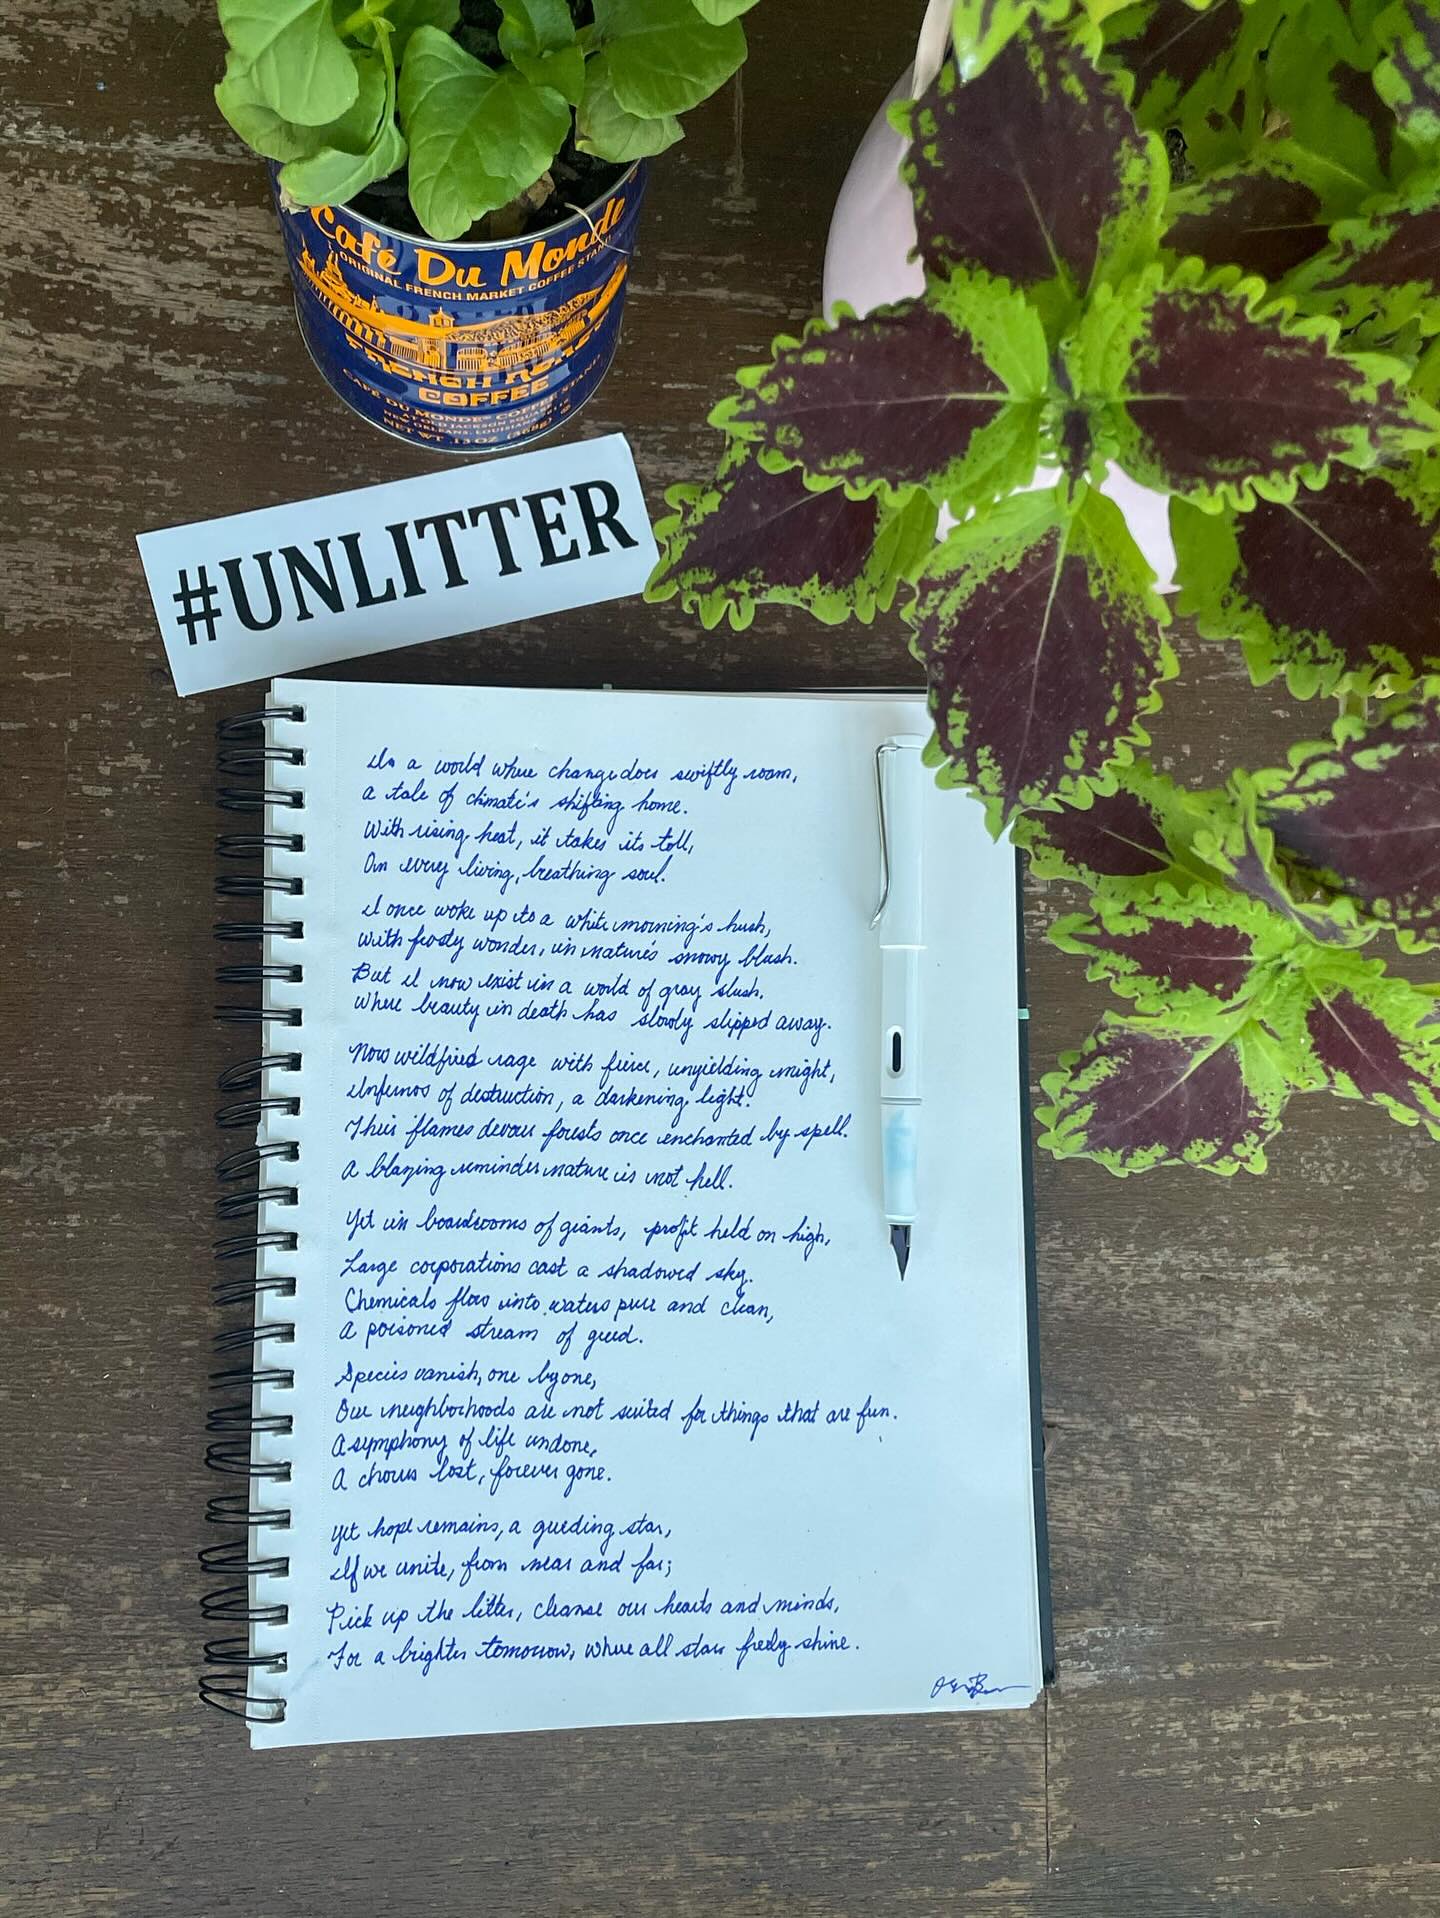 Café Du Monde
ORIGINAL FRENCH MARKET COFFEE STAND
FRENCH ROAST
COFFEE
CAFE DU MONDE® COFFEE STAND
AT OLD JACKSON SQUARE
NEW ORLEANS, LOUISIANA
NET WT. 13 OZ (368g)
#UNLITTER
In a world where change does swiftly roam,
a tale of climate's shifting home.
With rising heat, it takes its toll,
On every living, breathing soul.
I once woke up to a white morning's hush,
With frosty wonder, in nature's snowy blush.
But I now exist in a world of gray slush.
Where beauty in death has slowly slipped away.
Now wildfires rage with fierce, unyielding might,
Infernos of destruction, a darkening light.
Their flames devour forests once enchanted by spell.
A blazing reminder nature is not hell.
Yet in boardrooms of giants, profit held on high,
Large corporations cast a shadowed sky.
Chemicals flow into waters pure and clean,
A poisoned stream of greed.
Species vanish, one by one,
Our neighborhoods are not suited for things that are fun.
A symphony of life undone,
A chorus lost, forever gone.
Yet hope remains, a guiding star,
If we unite, from near and far;
Pick up the litter, cleanse our hearts and minds,
For a brighter tomorrow, where all stars freely shine.